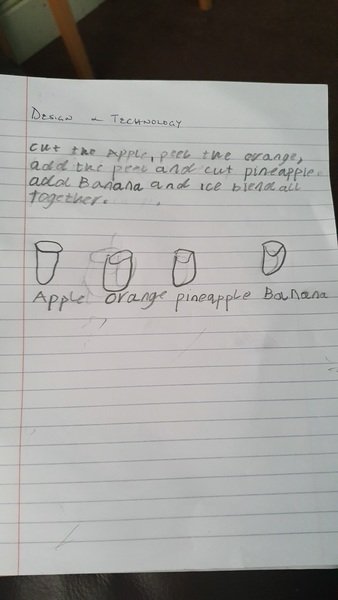 DESIGN & TECHNOLOGY
cut the Apple, peel the orange,
add the pear and cut pineapple.
add Banana and ice blend all
together.
Apple orange pineapple Banana